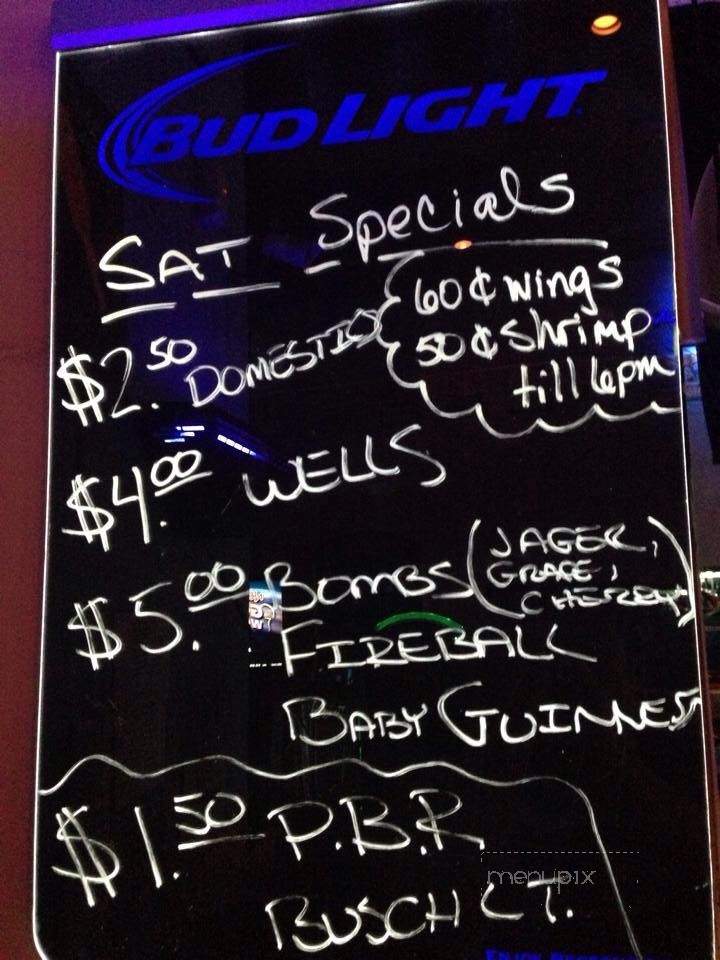 BUD LIGHT
SAT Specials
60¢ wings
50¢ shrimp
till 6pm
$2.50 DOMESTICS
$4.00 WELLS
$5.00 BOMBS (JAGER,
GRAPE,
CHERRY)
FIREBALL
BABY GUINNESS
$1.50 P.B.R
BUSCH LT.
menupix
ENJOY